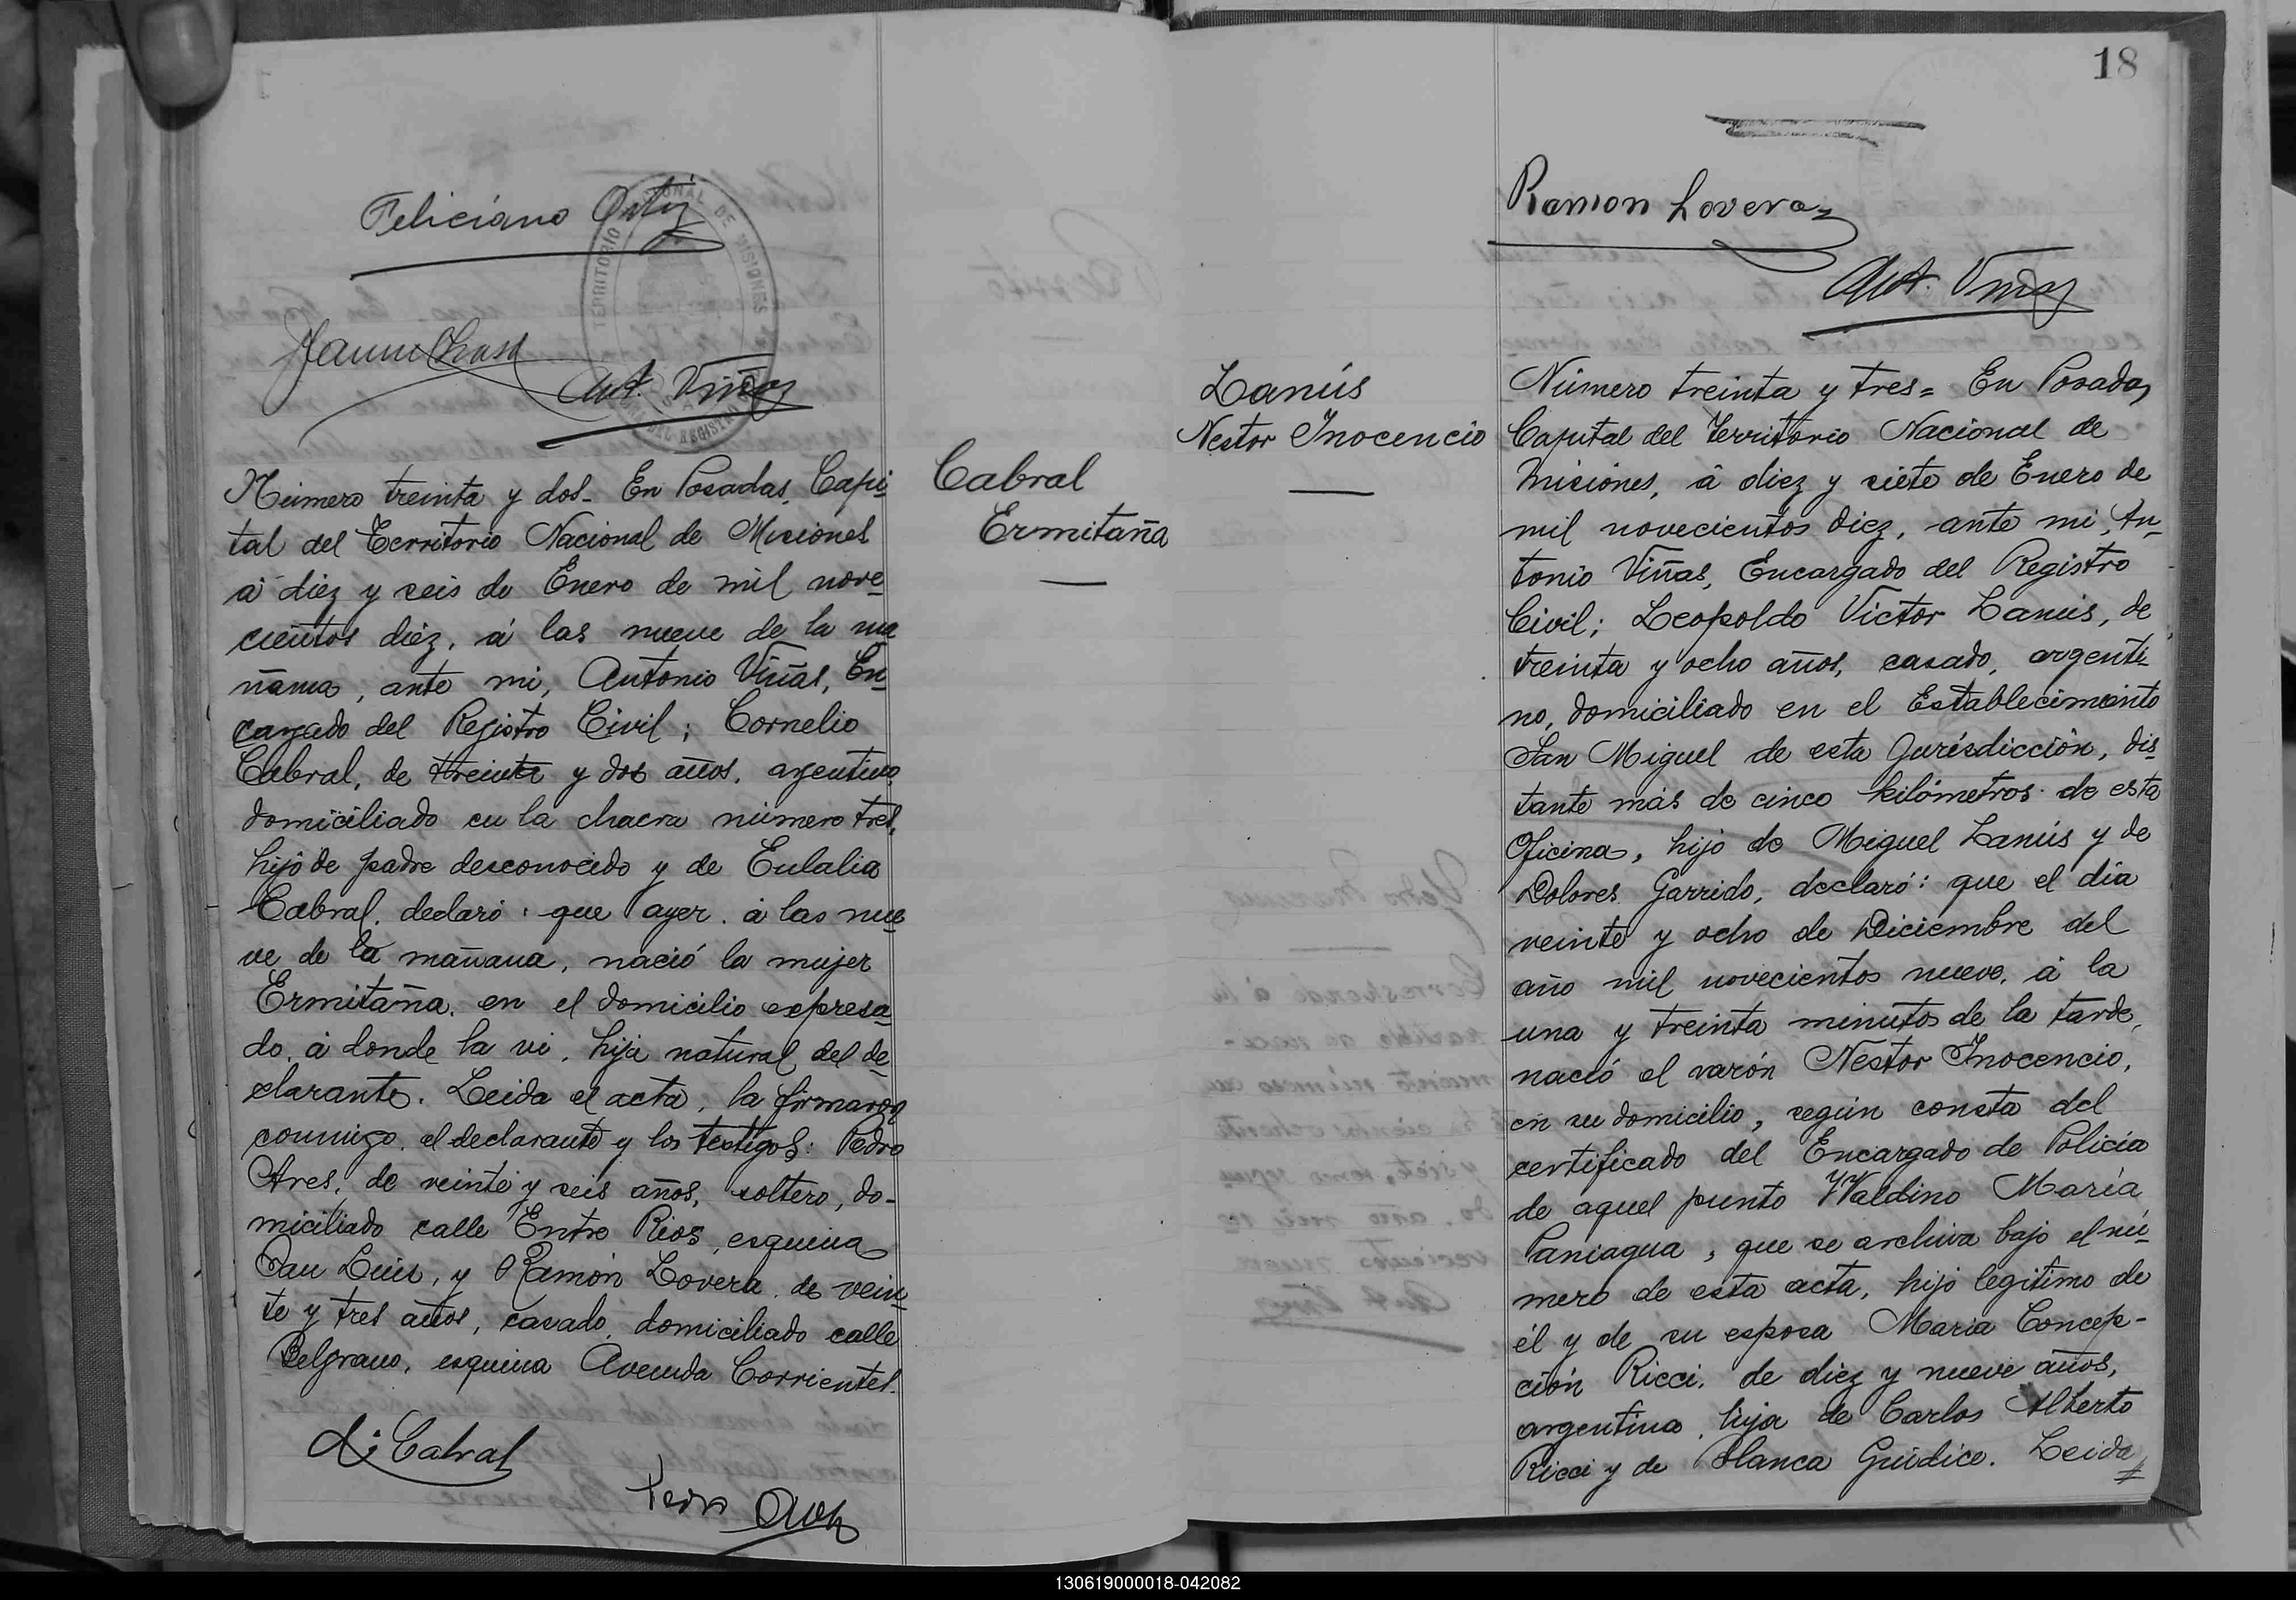 Feliciano Ortiz
TERRITORIO NACIONAL DE MISIONES
Ant. Viñas
Número treinta y dos - En Posadas, Capi-
tal del Territorio Nacional de Misiones
á diez y seis de Enero de mil nove-
cientos diez, á las nueve de la ma
ñana, ante mi, Antonio Viñas, En-
cargado del Registro Civil; Cornelio
Cabral, de treinta y dos años, argentino,
domiciliado en la chacra número tres,
hijo de padre desconocido y de Eulalia
Cabral, declaró: que ayer, á las nue-
ve de la mañana, nació la mujer
Ermitaña, en el domicilio expresa-
do, á donde la vi, hija natural del de-
clarante. Leida el acta, la firmaron
conmigo, el declarante y los testigos: Pedro
Ares, de veinte y seis años, soltero, do-
miciliado calle Entre Rios, esquina
San Luis, y Ramón Lovera, de vein-
te y tres años, casado, domiciliado calle
Belgrano, esquina Avenida Corrientes.
Cabral
Pedro
Cabral
Ermitaña
18
Ramon Lovera
Ant. Viñas
Lanús
Nestor Inocencio
Número treinta y tres = En Posadas,
Capital del Territorio Nacional de
Misiones, á diez y siete de Enero de
mil novecientos diez, ante mi, An-
tonio Viñas, Encargado del Registro
Civil; Leopoldo Victor Lanús, de
treinta y ocho años, casado, argenti-
no, domiciliado en el Establecimiento
San Miguel de esta Jurisdicción, dis-
tante más de cinco kilómetros de esta
Oficina, hijo de Miguel Lanús y de
Dolores Garrido, declaró: que el día
veinte y ocho de Diciembre del
año mil novecientos nueve, á la
una y treinta minutos de la tarde,
nació el varón Nestor Inocencio,
en su domicilio, según consta del
certificado del Encargado de Policía
de aquel punto Waldino María
Paniagua, que se archiva bajo el nú-
mero de esta acta, hijo legitimo de
él y de su esposa Maria Concep-
ción Ricci, de diez y nueve años,
argentina, hija de Carlos Alberto
Ricci y de Blanca Guidice. Leida
130619000018-042082